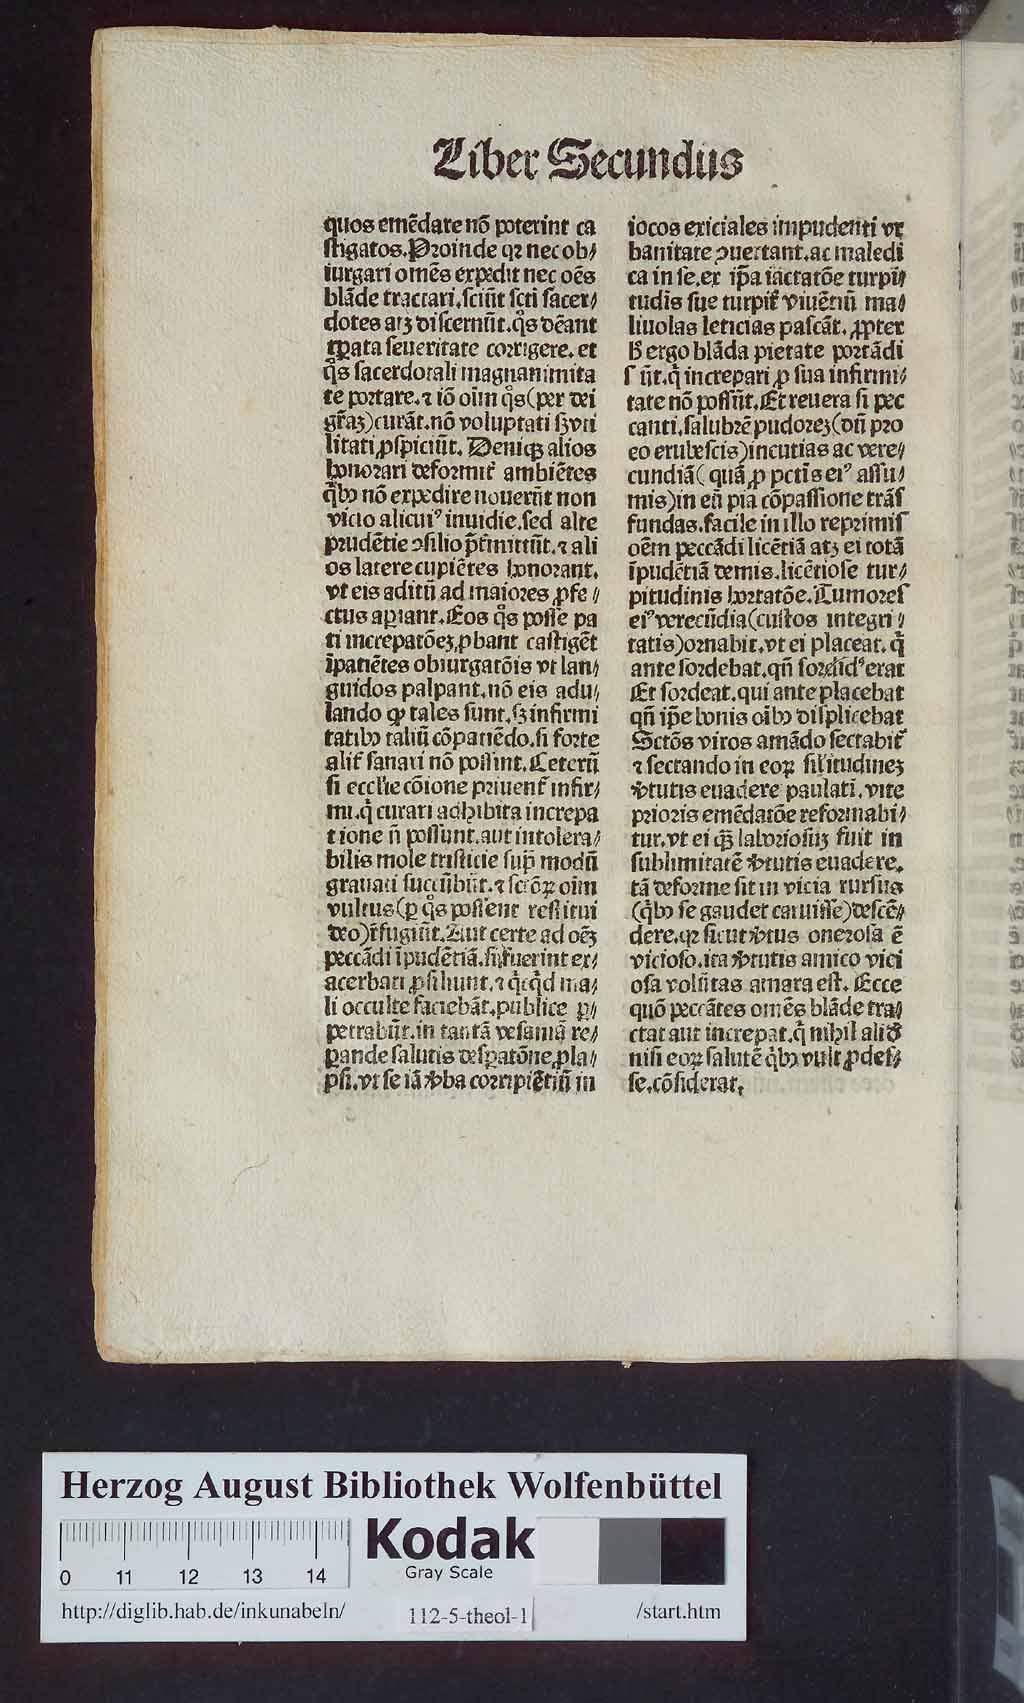 Liber Secundus
quos emēdare nō poterint ca
stigatos. Proinde qꝛ nec ob⸗
iurgari omēs expedit nec oēs
blāde tractari. sciūt scti sacer⸗
dotes atqꝫ discernūt. qͦs dēant
tꝑata seueritate corrigere. et
qͦs sacerdotali magnanimita
te portare. ⁊ iō oīm qͦs (per dei
gr̄aꝫ) curāt. nō voluptati sꝫ vti
litati ꝓspiciūt. Deniqꝫ alios
honorari deformit̄ ambiētes
qͥbꝰ nō expedire nouerūt non
vicio alicuiꝰ inuidie. sed alte
prudētie ꝯsilio p̄t̄mittūt. ⁊ ali
os latere cupiētes honorant.
vt eis aditū ad maiores ꝓfe⸗
ctus aꝑiant. Eos qͦs posse pa
ti increpatōeꝫ ꝓbant castigēt
īpatiētes obiurgatōis vt lan⸗
guidos palpant. nō eis adu⸗
lando ꝙ tales sunt. sꝫ infirmi
tatibꝰ taliū cōpatiēdo. si forte
alit̄ sanari nō possint. Ceterū
si eccl'ie cōione priuent̄ infir⸗
mi. qͥ curari adhibita increpa
tione n̄ possunt. aut intolera⸗
bilis mole tristicie sup̄ modū
grauati succūbūt. ⁊ sctōꝝ oīm
vultus (ꝑ qͦs possent restitui
deo) r̄fugiūt. Aut certe ad oēꝫ
peccādi īpudētiā. si fuerint ex⸗
acerbati ꝓsiliunt. ⁊ qͥcqͥd ma⸗
li occulte faciebāt. publice ꝑ⸗
petrabūt. in tantā vesaniā re⸗
pande salutis desꝑatōne ꝓla⸗
psi. vt se iā v̄ba corripiētiū in
iocos exiciales impudenti vr
banitate ꝯuertant. ac maledi
ca in se. ex ip̄a iactatōe turpi⸗
tudis sue turpit̄ viuētiū ma⸗
liuolas leticias pascāt. ꝓpter
h̄ ergo blāda pietate portādi
sūt. qͥ increpari ꝓ sua infirmi⸗
tate nō possūt. Et reuera si pec
canti. salubrē pudoreꝫ (dū pro
eo erubescis) incutias ac vere⸗
cundiā (quā ꝓ pctīs eiꝰ assu⸗
mis) in eū pia cōpassione trās
fundas. facile in illo reprimis
oēm peccādi licētiā atqꝫ ei totā
īpudētiā demis. licētiose tur⸗
pitudinis hortatōe. Tumores
eiꝰ verecūdia (custos integri⸗
tatis) ornabit. vt ei placeat. qͥ
ante sordebat. qn̄ sordidꝰ erat
Et sordeat. qui ante placebat
qn̄ ip̄e bonis oībꝰ displicebat
Sctōs viros amādo sectabit̄
⁊ sectando in eoꝝ silitudineꝫ
v̄tutis euadere paulatī. vite
prioris emēdatōe reformabi⸗
tur. vt ei qͣꝫ laboriosuꝫ fuit in
sublimitatē v̄tutis euadere.
tā deforme sit in vicia rursus
(qͥbꝰ se gaudet caruisse) descē⸗
dere. qꝛ sicut v̄tus onerosa ē
vicioso. ita v̄tutis amico vici
osa volūtas amara est. Ecce
quō peccātes omēs blāde tra⸗
ctat aut increpat. qͥ nihil aliđ
nisi eoꝝ salutē qͥbꝰ vult ꝓdes⸗
se. cōsiderat.
Herzog August Bibliothek Wolfenbüttel
Kodak
Gray Scale
0 11 12 13 14
http://diglib.hab.de/inkunabeln/ 112-5-theol-1 /start.htm